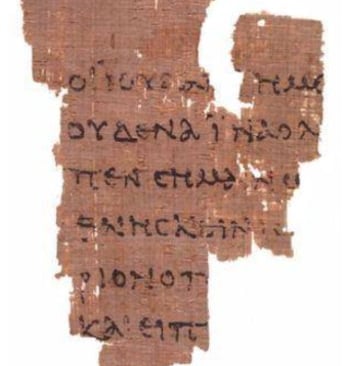 ΟΙ ΙΟΥΔΑΙ ΗΜΕ
ΟΥΔΕΝΑ ΪΝΑ Ο Λ
ΠΕΝ ΣΗΜΑΙΝΩ
ΘΝΗΣΚΕΙΝ
ΡΙΟΝ Ο Π
ΚΑΙ ΕΙΠ